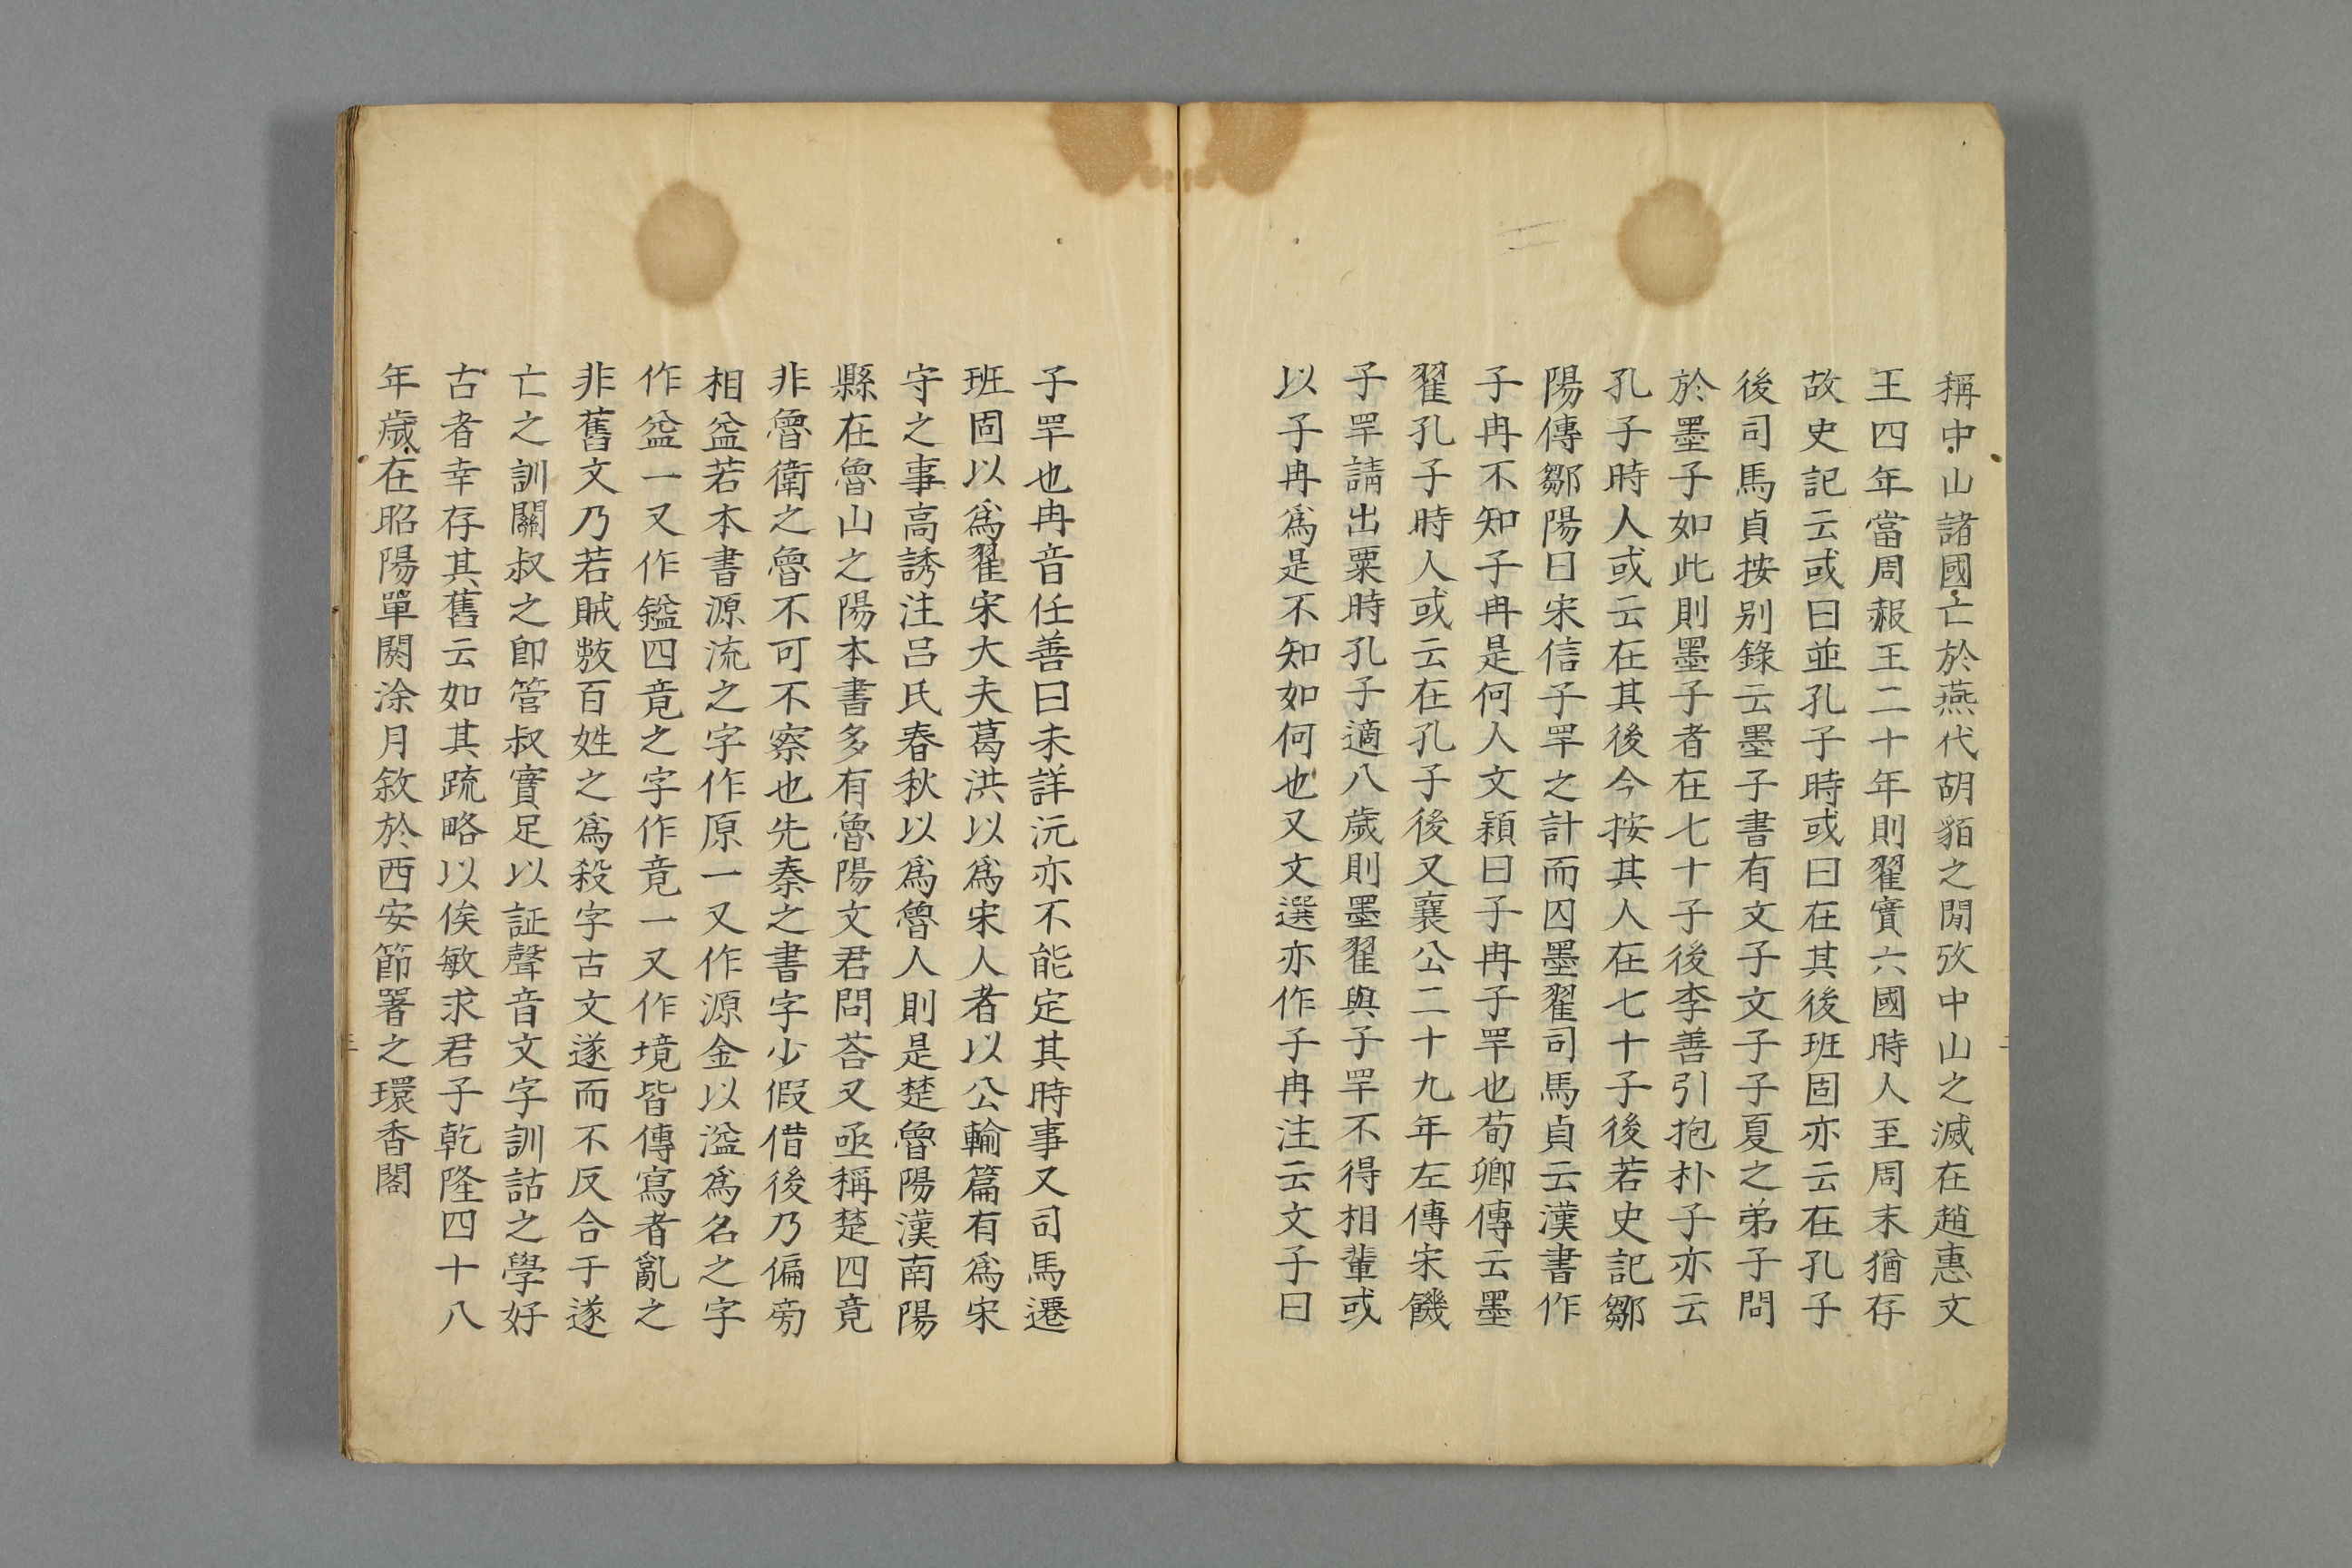 稱中山諸國亡於燕代胡貊之閒攷中山之滅在趙惠文
王四年當周赧王二十年則翟實六國時人至周末猶存
故史記云或曰並孔子時或曰在其後班固亦云在孔子
後司馬貞按别錄云墨子書有文子文子子夏之弟子問
於墨子如此則墨子者在七十子後李善引抱朴子亦云
孔子時人或云在其後今按其人在七十子後若史記鄒
陽傳鄒陽曰宋信子罕之計而囚墨翟司馬貞云漢書作
子冉不知子冉是何人文穎曰子冉子罕也荀卿傳云墨
翟孔子時人或云在孔子後又襄公二十九年左傳宋饑
子罕請出粟時孔子適八歲則墨翟與子罕不得相輩或
以子冉爲是不知如何也又文選亦作子冉注云文子曰
子罕也冉音任善曰未詳沅亦不能定其時事又司馬遷
班固以爲翟宋大夫葛洪以爲宋人者以公輸篇有爲宋
守之事高誘注吕氏春秋以爲魯人則是楚魯陽漢南陽
縣在魯山之陽本書多有魯陽文君問荅又亟稱楚四竟
非魯衛之魯不可不察也先秦之書字少假借後乃偏旁
相益若本書源流之字作原一又作源金以溢爲名之字
作益一又作鎰四竟之字作竟一又作境皆傳寫者亂之
非舊文乃若賊㪇百姓之爲殺字古文遂而不反合于遂
亡之訓關叔之卽管叔實足以証聲音文字訓詁之學好
古者幸存其舊云如其疏略以俟敏求君子乾隆四十八
年歲在昭陽單閼涂月敘於西安節署之環香閣